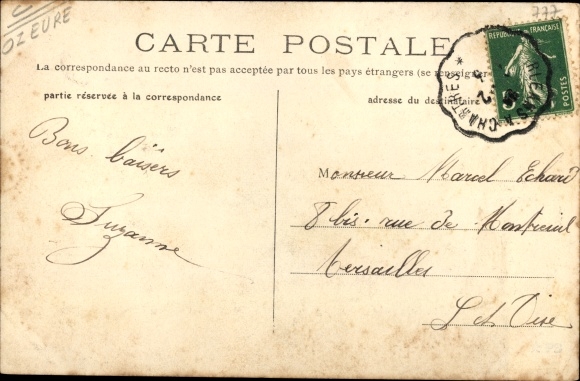 OZ EURE
777
CARTE POSTALE
La correspondance au recto n'est pas acceptée par tous les pays étrangers (se renseigner
partie réservée à la correspondance
adresse du destinataire
RÉPUBLIQUE FRANÇAISE
POSTES
5
CHARTRES *
Bons baisers
Suzanne
Monsieur Marcel Echard
8 bis. rue de Montreuil
Versailles
S et Oise